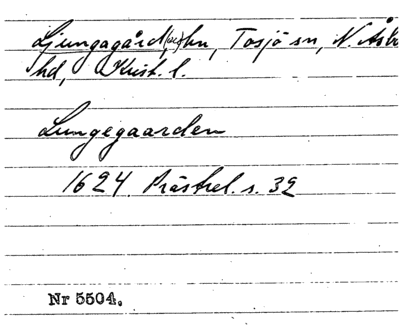 Ljungagård(en), hn, Tosjö sn, N. Åsbo
hd, Krist. l.
Lungegaarden
1624. Prästrel. s. 32
Nr 5504.